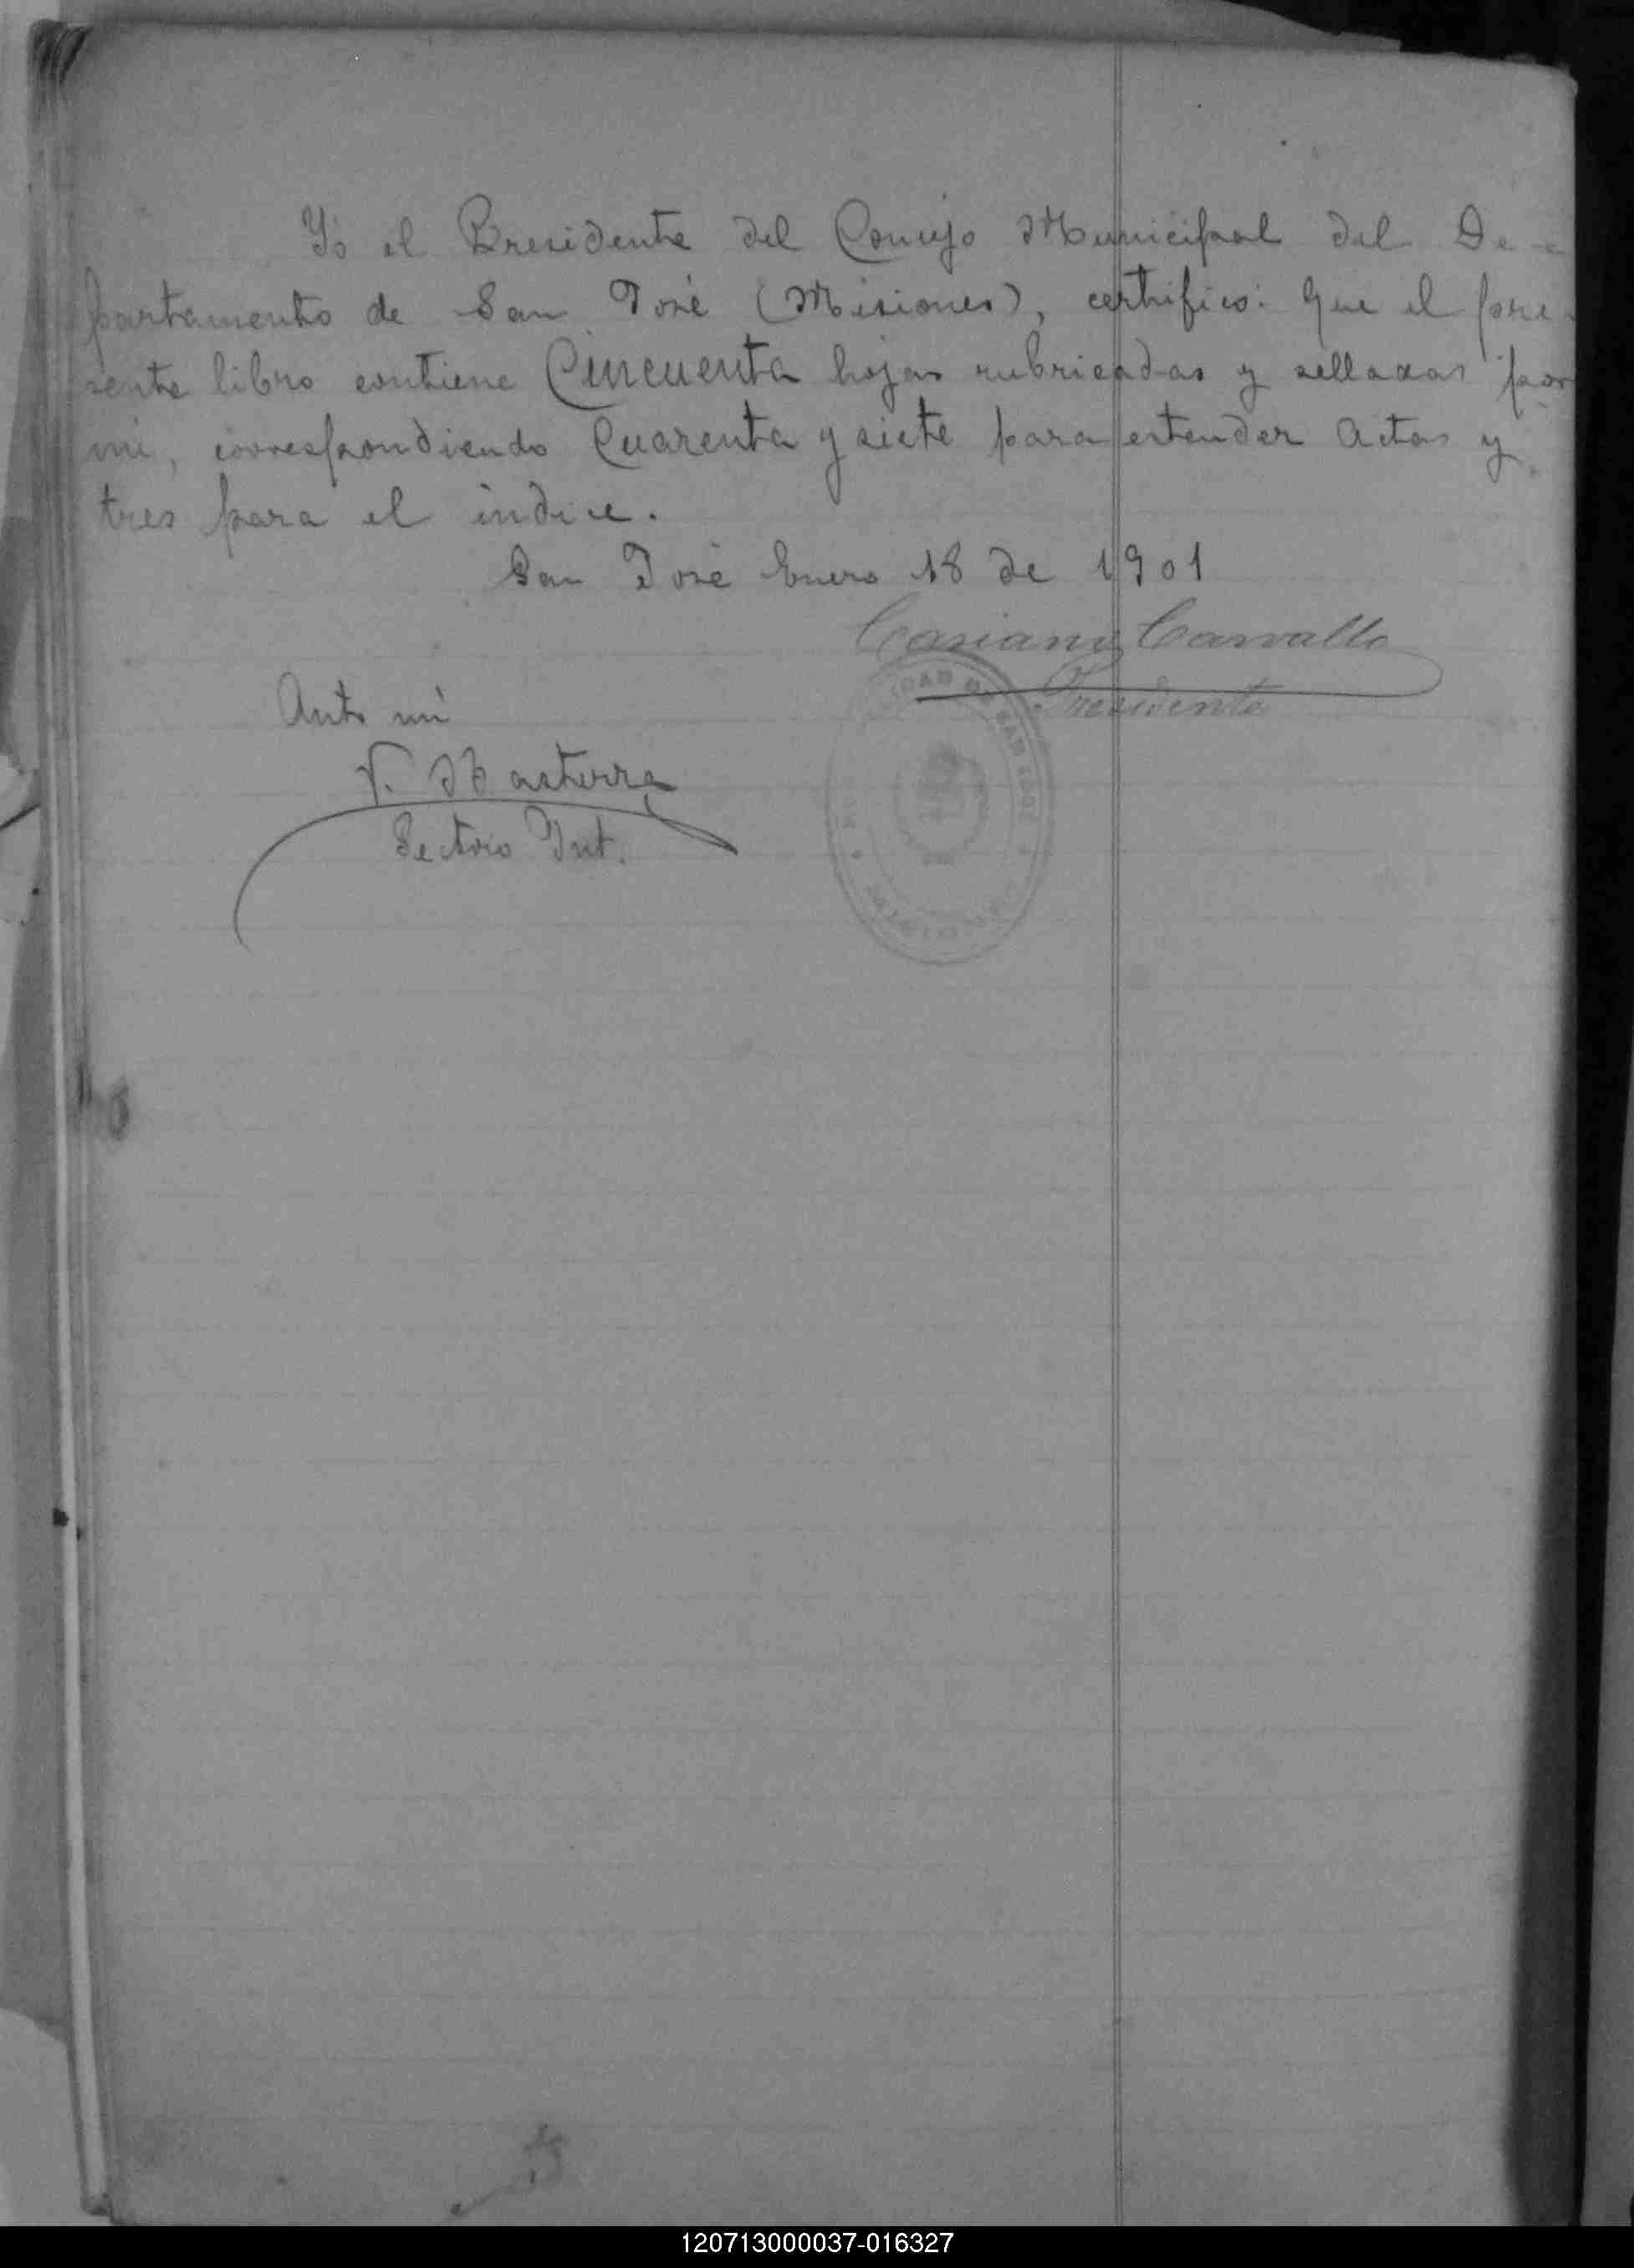 Yo el Presidente del Concejo Municipal del De-
partamento de San José (Misiones), certifico: Que el pre-
sente libro contiene Cincuenta hojas rubricadas y selladas por
mi, correspondiendo Cuarenta y siete para estender Actas y
tres para el indice.
San José Enero 18 de 1901
Casiano Carvallo
Presidente
Ante mi
Sectrio Int.
DAD DE SAN JOSE
120713000037-016327